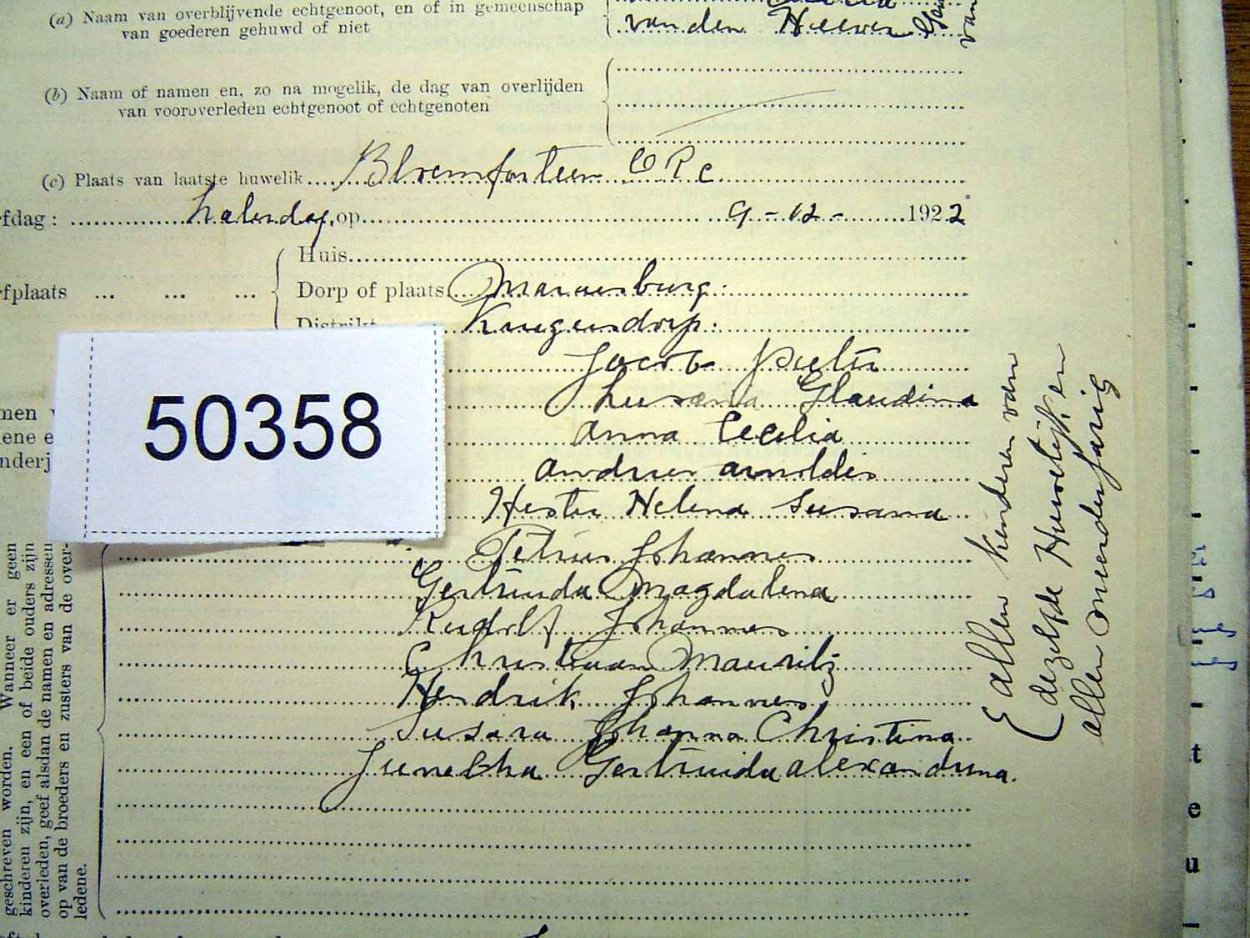 (a) Naam van overblijvende echtgenoot, en of in gemeenschap
van goederen gehuwd of niet
van den Heever
van
(b) Naam of namen en, zo na mogelik, de dag van overlijden
van vooroverleden echtgenoot of echtgenoten
(c) Plaats van laatste huwelik
fdag : op 9-12- 1922
Huis
fplaats ... ... ...
Dorp of plaats
Distrikt Krugersdorp.
Jacob Pieter
Susana Glaudina
Anna Cecilia
Andries Arnoldis
Hester Helena Susana
Petrus Johannes
Gertruida Magdalena
Rudolf Johannes
Christiaan Mauritz
Hendrik Johannes
Susara Johanna Christina
Gertruida Alexandrina.
allen kinderen van
dezelfde Huwelijk en
allen minderjarig
50358
men
ene e
nderj
geschreven worden. Wanneer er geen
kinderen zijn, en een of beide ouders zijn
overleden, geef alsdan de namen en adressen
op van de broeders en zusters van de over-
ledene.
t
e
u